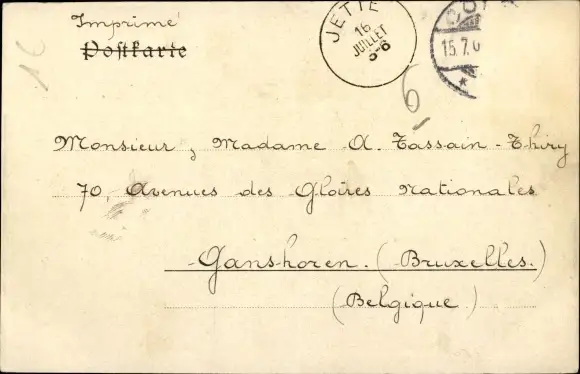 Imprimé
Postkarte
JETTE
16
JUILLET
5-6
15.7.0
6
Monsieur, Madame A. Tassain-Thiry
70, Avenues des Gloires Nationales
Ganshoren. (Bruxelles.)
(Belgique.)